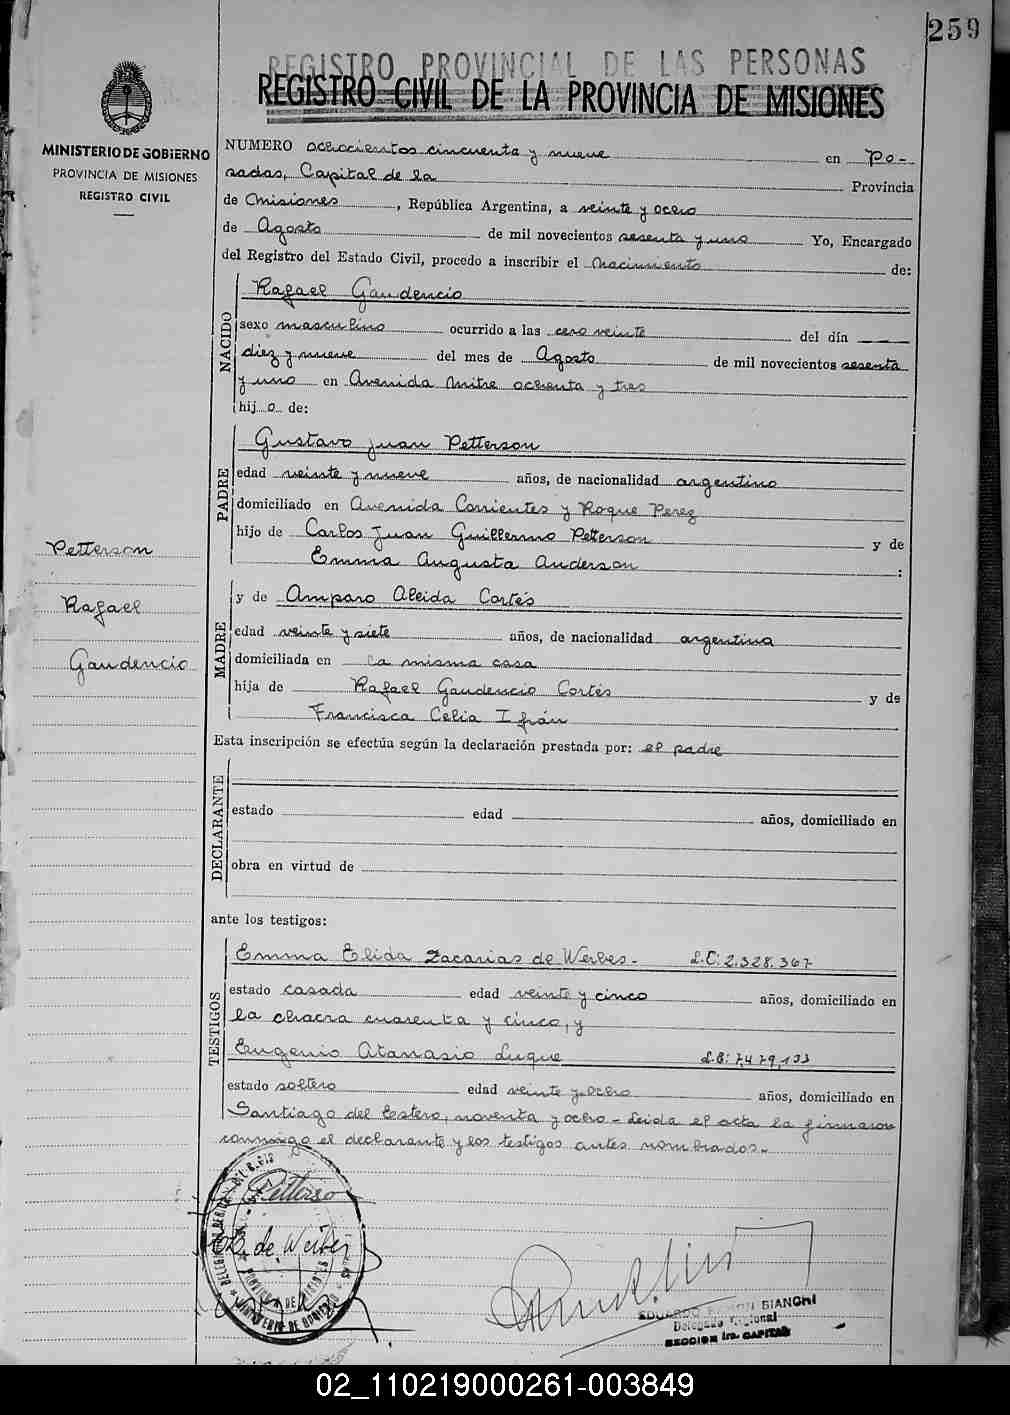 259
REGISTRO PROVINCIAL DE LAS PERSONAS
REGISTRO CIVIL DE LA PROVINCIA DE MISIONES
MINISTERIO DE GOBIERNO
PROVINCIA DE MISIONES
REGISTRO CIVIL
NUMERO ochocientos cincuenta y nueve en Po-
sadas, Capital de la Provincia
de Misiones, República Argentina, a veinte y ocho
de Agosto de mil novecientos sesenta y uno Yo, Encargado
del Registro del Estado Civil, procedo a inscribir el nacimiento de:
NACIDO
Rafael Gaudencio
sexo masculino ocurrido a las cero veinte del día
diez y nueve del mes de Agosto de mil novecientos sesenta
y uno en Avenida Mitre ochenta y tres
hijo de:
PADRE
Gustavo Juan Petterson
edad veinte y nueve años, de nacionalidad argentino
domiciliado en Avenida Corrientes y Roque Perez
hijo de Carlos Juan Guillermo Petterson y de
Emma Augusta Anderson :
Petterson
Rafael
Gaudencio
MADRE
y de Amparo Aleida Cortés
edad veinte y siete años, de nacionalidad argentina
domiciliada en la misma casa
hija de Rafael Gaudencio Cortés y de
Francisca Celia Ifrán
Esta inscripción se efectúa según la declaración prestada por: el padre
DECLARANTE
estado edad años, domiciliado en
obra en virtud de
ante los testigos:
TESTIGOS
Emma Elida Zacarias de Werbes.- L.C: 2.328.367
estado casada edad veinte y cinco años, domiciliado en
la chacra cuarenta y cinco, y
Eugenio Atanasio Luque L.E: 7,479,133
estado soltero edad veinte y ocho años, domiciliado en
Santiago del Estero, noventa y ocho - Leida el acta la firmaron
conmigo el declarante y los testigos antes nombrados.-
Petterso
de
MINISTERIO DE GOBIERNO
EDUARDO RAMON BIANCHI
Delegado Regional
SECCION 1ra. CAPITAL
02_110219000261-003849